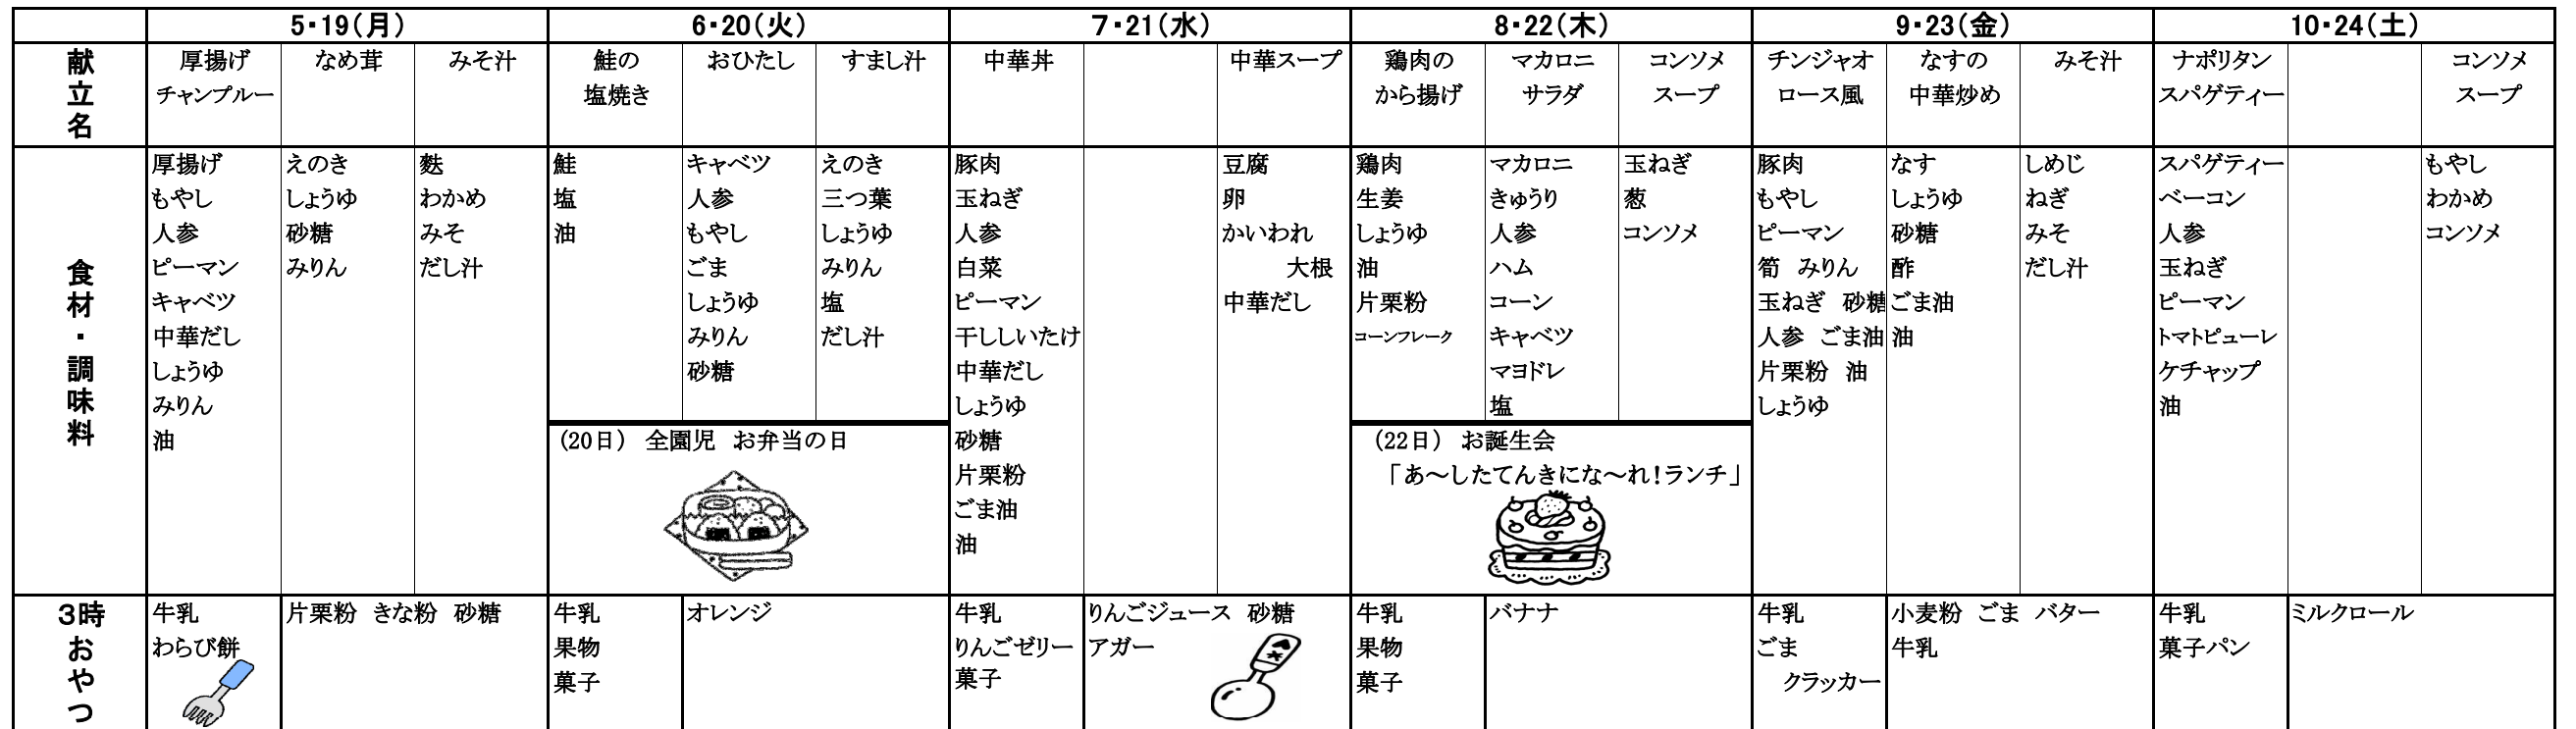 5・19(月) 6・20(火) 7・21(水) 8・22(木) 9・23(金) 10・24(土)
献立名
厚揚げ
チャンプルー
なめ茸
みそ汁
鮭の
塩焼き
おひたし
すまし汁
中華丼
中華スープ
鶏肉の
から揚げ
マカロニ
サラダ
コンソメ
スープ
チンジャオ
ロース風
なすの
中華炒め
みそ汁
ナポリタン
スパゲティー
コンソメ
スープ
食材・調味料
厚揚げ
もやし
人参
ピーマン
キャベツ
中華だし
しょうゆ
みりん
油
えのき
しょうゆ
砂糖
みりん
麩
わかめ
みそ
だし汁
鮭
塩
油
キャベツ
人参
もやし
ごま
しょうゆ
みりん
砂糖
えのき
三つ葉
しょうゆ
みりん
塩
だし汁
(20日) 全園児 お弁当の日
豚肉
玉ねぎ
人参
白菜
ピーマン
干ししいたけ
中華だし
しょうゆ
砂糖
片栗粉
ごま油
油
豆腐
卵
かいわれ
大根
中華だし
鶏肉
生姜
しょうゆ
油
片栗粉
コーンフレーク
マカロニ
きゅうり
人参
ハム
コーン
キャベツ
マヨドレ
塩
玉ねぎ
葱
コンソメ
(22日) お誕生会
「あ～したてんきにな～れ!ランチ」
豚肉
もやし
ピーマン
筍 みりん
玉ねぎ 砂糖
人参 ごま油
片栗粉 油
しょうゆ
なす
しょうゆ
砂糖
酢
ごま油
油
しめじ
ねぎ
みそ
だし汁
スパゲティー
ベーコン
人参
玉ねぎ
ピーマン
トマトピューレ
ケチャップ
油
もやし
わかめ
コンソメ
3時おやつ
牛乳
わらび餅
片栗粉 きな粉 砂糖
牛乳
果物
菓子
オレンジ
牛乳
りんごゼリー
菓子
りんごジュース 砂糖
アガー
牛乳
果物
菓子
バナナ
牛乳
ごま
クラッカー
小麦粉 ごま バター
牛乳
牛乳
菓子パン
ミルクロール